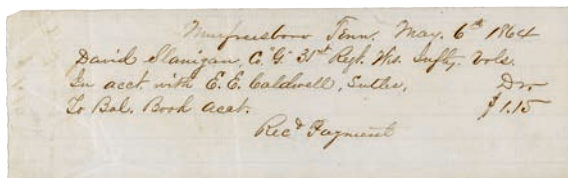 Murfreesboro Tenn. May. 6th 1864
David Flanigan, Co. "G" 31st Regt. Wis. Infty. Vols.
In acct. with E. E. Caldwell, Sutler, Dr.
To Bal. Book acct. $1.15
Recd Payment